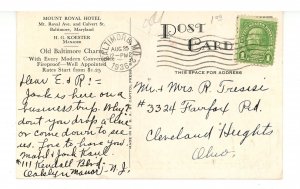 MOUNT ROYAL HOTEL
Mt. Royal Ave. and Calvert St.
Baltimore, Maryland
H. G. KOESTER
MANAGER
Old Baltimore Charm
With Every Modern Convenience
Fireproof—Well Appointed
Rates Start from $1.25
Dear E & P! —
Jack is here on a
business trip. Why
don't you drop a line
or come down to see
us. Love to have you
Mark & Jack
#111 Kendall Blvd.
Oaklyn Manor, N.J.
BALTIMORE, MD.
AUG 25
POST
CARD
THIS SPACE FOR ADDRESS
Mr. & Mrs R. Treise
#3324 Fairfax Rd.
Cleveland Heights
Ohio.